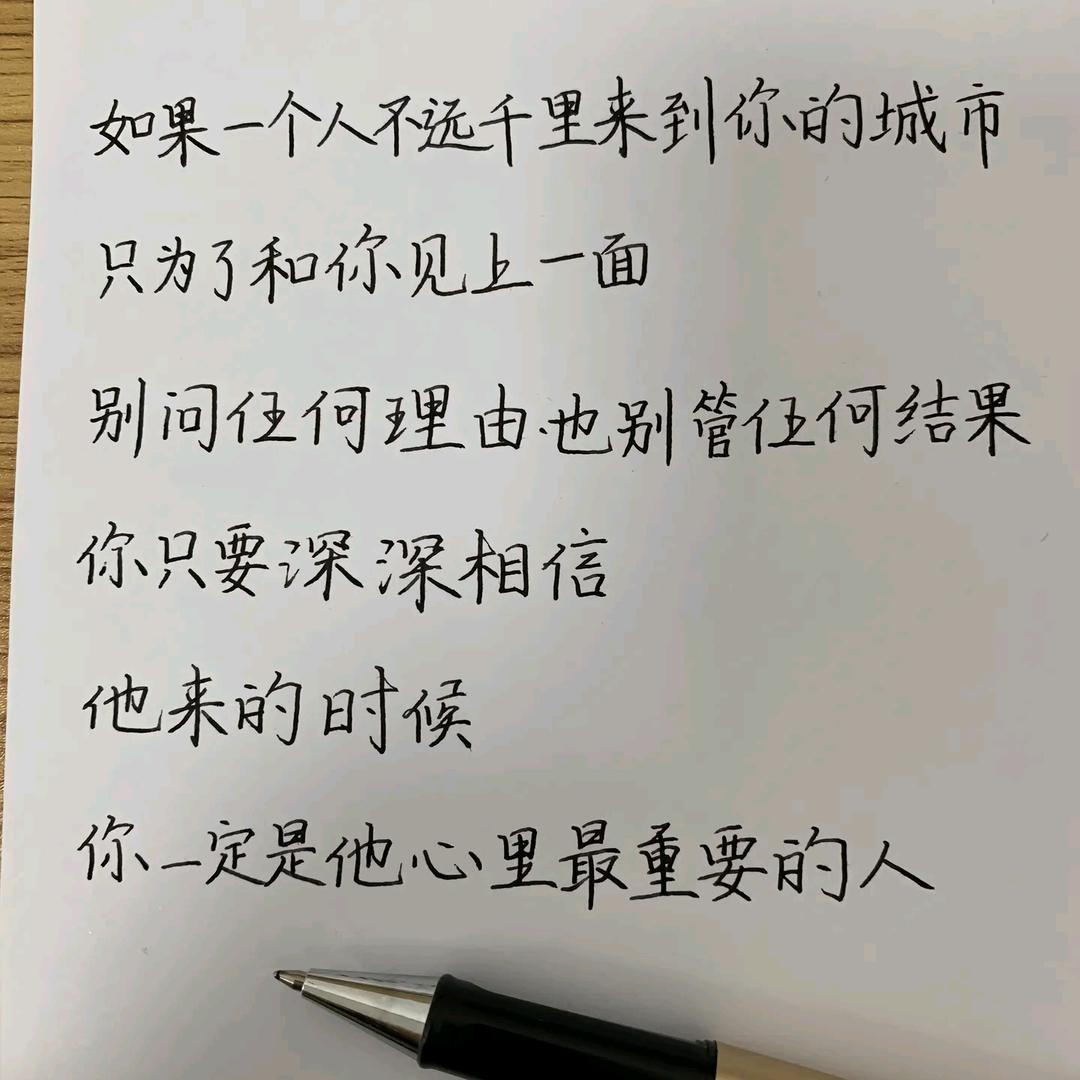 如果一个人不远千里来到你的城市
只为了和你见上一面
别问任何理由.也别管任何结果
你只要深深相信
他来的时候
你一定是他心里最重要的人